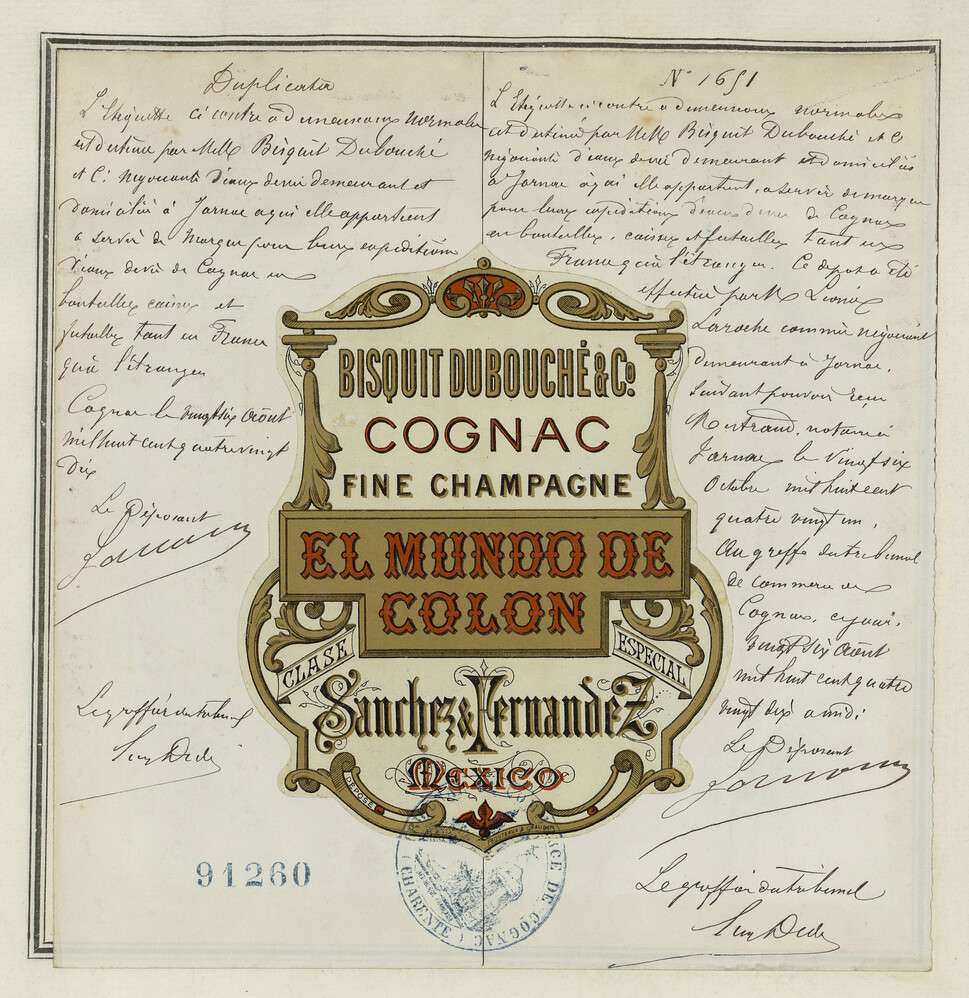 Duplicata
L'Etiquette ci contre a dimensions normales
est destinée par MM Bisquit Dubouché
et Cie Negociants d'eaux de vie demeurant et
domiciliés à Jarnac à qui elle appartient
a servir de Marque pour leurs expeditions
d'eaux de vie de Cognac en
bouteilles caisses et
futailles tant en France
qu'à l'étranger
Cognac le vingt six Août
mil huit cent quatre vingt
Dix
Le Déposant
Le greffier du tribunal
N° 1651
L'Etiquette ci contre a dimensions normales
est destinée par MM Bisquit Dubouché et Cie
Négociants d'eaux de vie demeurant et domiciliés
à Jarnac à qui elle appartient, a servir de marque
pour leurs expeditions d'eaux de vie de Cognac
en bouteilles, caisses et futailles tant en
France qu'à l'étranger. Ce depot a été
effectué par M Léonie
Laroche commis négociant
demeurant à Jarnac,
Suivant pouvoir reçu
notaire à
Jarnac le vingt six
Octobre mil huit cent
quatre vingt un,
Au greffe du tribunal
de commerce de
Cognac, ce jour,
vingt six Août
mil huit cent quatre
vingt dix a midi
Le Déposant
Le greffier du tribunal
BISQUIT DUBOUCHÉ & Co
COGNAC
FINE CHAMPAGNE
EL MUNDO DE
COLON
CLASE ESPECIAL
Sanchez & Fernandez
MEXICO
DÉPOSÉ
91260
CE DE COGNAC
(CHARENTE)